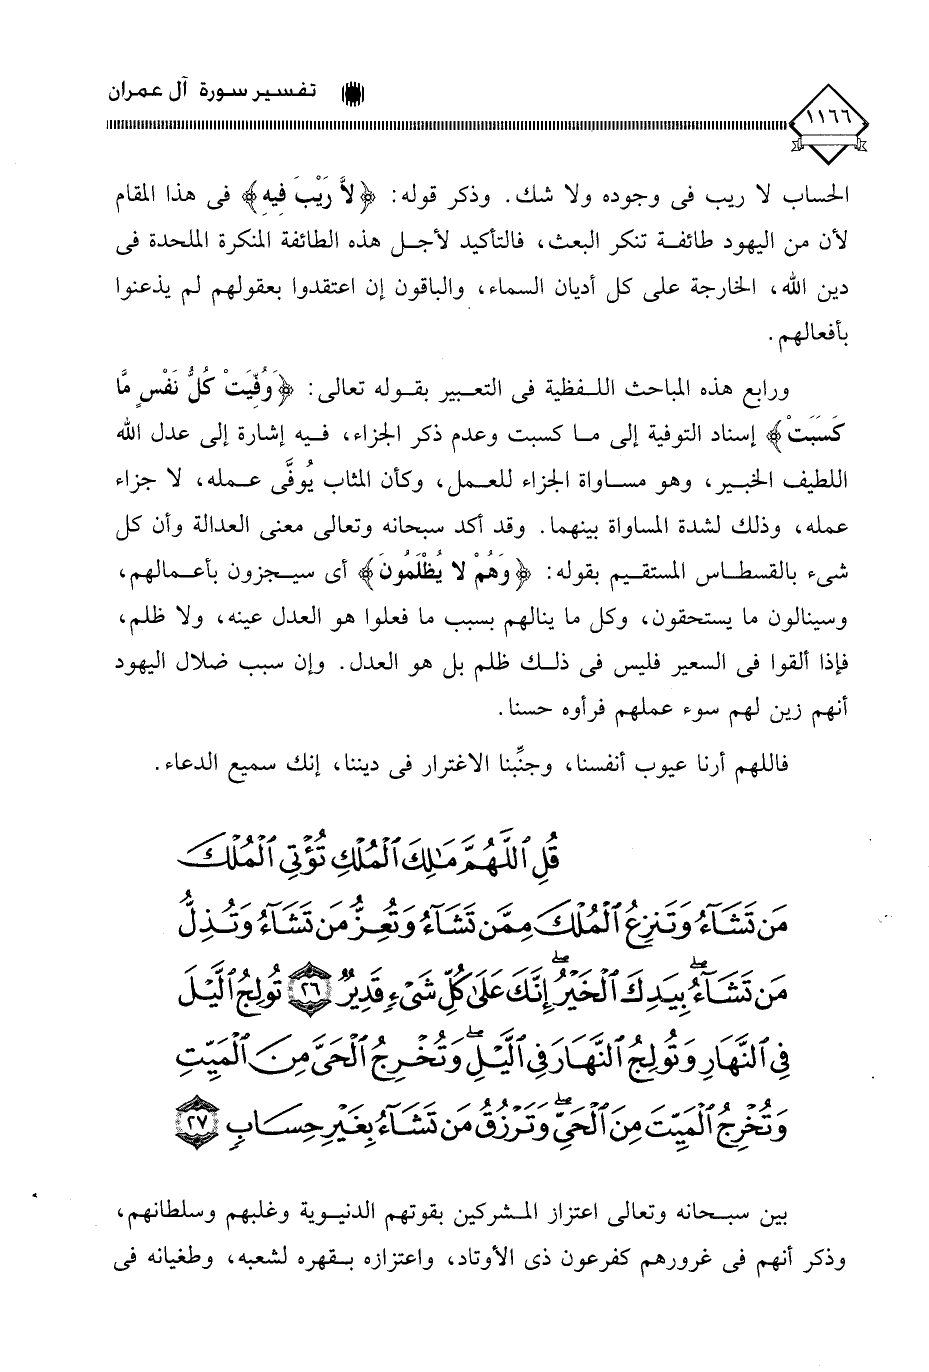 تفسير سورة آل عمران
١١٦٦
الحساب لا ريب فى وجوده ولا شك. وذكر قوله: ﴿لاَّ رَيْبَ فِيهِ﴾ فى هذا المقام
لأن من اليهود طائفة تنكر البعث، فالتأكيد لأجل هذه الطائفة المنكرة الملحدة فى
دين الله، الخارجة على كل أديان السماء، والباقون إن اعتقدوا بعقولهم لم يذعنوا
بأفعالهم.
ورابع هذه المباحث اللفظية فى التعبير بقوله تعالى: ﴿وَوُفِّيَتْ كُلُّ نَفْسٍ مَّا
كَسَبَتْ﴾ إسناد التوفية إلى ما كسبت وعدم ذكر الجزاء، فيه إشارة إلى عدل الله
اللطيف الخبير، وهو مساواة الجزاء للعمل، وكأن المثاب يُوفَّى عمله، لا جزاء
عمله، وذلك لشدة المساواة بينهما. وقد أكد سبحانه وتعالى معنى العدالة وأن كل
شىء بالقسطاس المستقيم بقوله: ﴿وَهُمْ لا يُظْلَمُونَ﴾ أى سيجزون بأعمالهم،
وسينالون ما يستحقون، وكل ما ينالهم بسبب ما فعلوا هو العدل عينه، ولا ظلم،
فإذا ألقوا فى السعير فليس فى ذلك ظلم بل هو العدل. وإن سبب ضلال اليهود
أنهم زين لهم سوء عملهم فرأوه حسنا.
فاللهم أرنا عيوب أنفسنا، وجنِّبنا الاغترار فى ديننا، إنك سميع الدعاء.
قُلِ ٱللَّهُمَّ مَٰلِكَ ٱلْمُلْكِ تُؤْتِى ٱلْمُلْكَ
مَن تَشَآءُ وَتَنزِعُ ٱلْمُلْكَ مِمَّن تَشَآءُ وَتُعِزُّ مَن تَشَآءُ وَتُذِلُّ
مَن تَشَآءُۖ بِيَدِكَ ٱلْخَيْرُۖ إِنَّكَ عَلَىٰ كُلِّ شَىْءٍ قَدِيرٌ ٢٦ تُولِجُ ٱلَّيْلَ
فِى ٱلنَّهَارِ وَتُولِجُ ٱلنَّهَارَ فِى ٱلَّيْلِۖ وَتُخْرِجُ ٱلْحَىَّ مِنَ ٱلْمَيِّتِ
وَتُخْرِجُ ٱلْمَيِّتَ مِنَ ٱلْحَىِّۖ وَتَرْزُقُ مَن تَشَآءُ بِغَيْرِ حِسَابٍ ٢٧
بين سبحانه وتعالى اعتزاز المشركين بقوتهم الدنيوية وغلبهم وسلطانهم،
وذكر أنهم فى غرورهم كفرعون ذى الأوتاد، واعتزازه بقهره لشعبه، وطغيانه فى